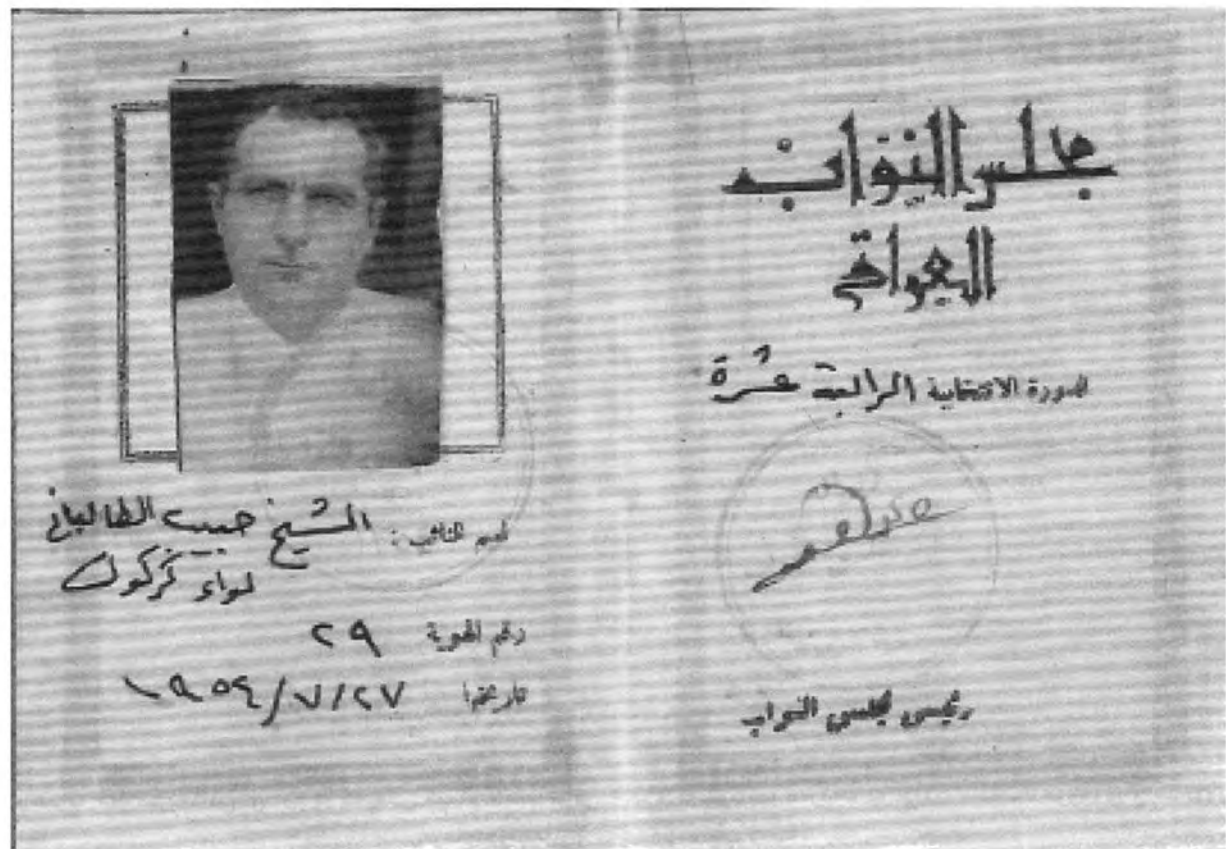 مجلس النواب
العراقي
للدورة الانتخابية الرابعة عشرة
رئيس مجلس النواب
اسم النائب : الشيخ حبيب الطالباني
لواء كركوك
رقم الهوية ٢٩
تاريخها ١٩٥٤/٧/٢٧